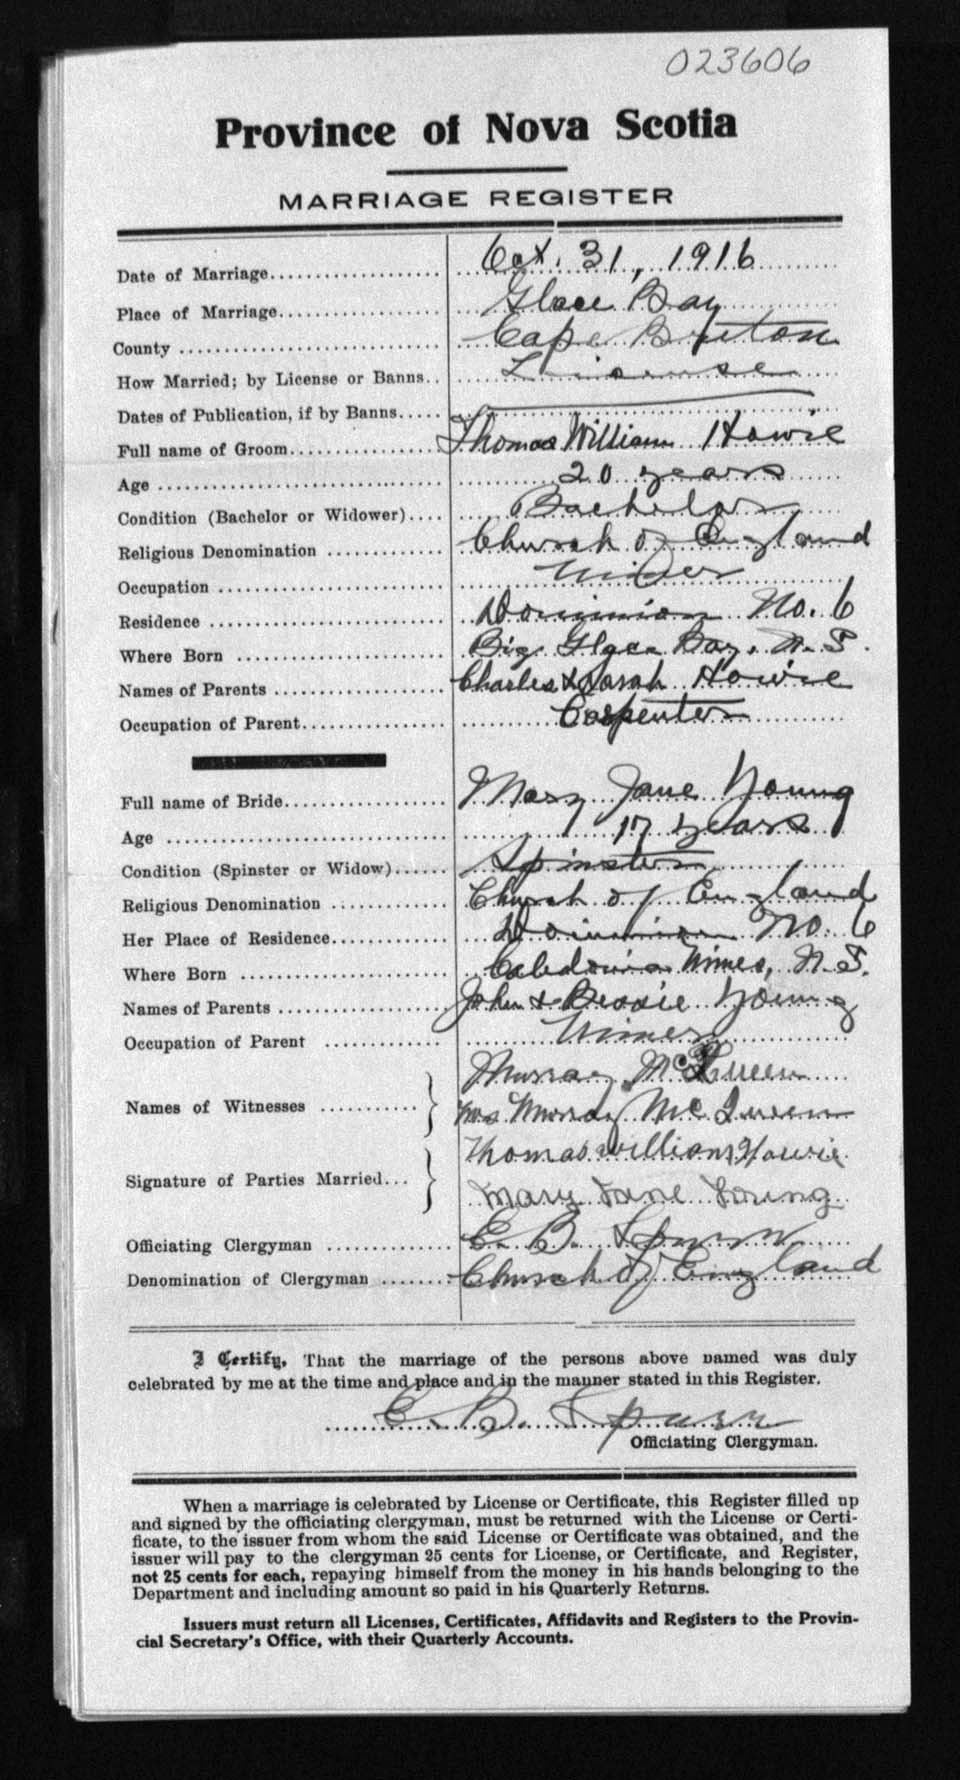 023606
Province of Nova Scotia
MARRIAGE REGISTER
Date of Marriage................... Oct. 31, 1916
Place of Marriage.................. Glace Bay
County ............................ Cape Breton
How Married; by License or Banns.. License
Dates of Publication, if by Banns.....
Full name of Groom................ Thomas William Howie
Age ............................... 20 years
Condition (Bachelor or Widower).... Bachelor
Religious Denomination ............ Church of England
Occupation ........................ Miner
Residence ......................... Dominion No. 6
Where Born ........................ Big Glace Bay, N.S.
Names of Parents .................. Charles & Norah Howie
Occupation of Parent............... Carpenter
Full name of Bride................. Mary Jane Young
Age ............................... 17 years
Condition (Spinster or Widow)...... Spinster
Religious Denomination ............ Church of England
Her Place of Residence............. Dominion No. 6
Where Born ........................ Caledonia Mines, N.S.
Names of Parents .................. John & Bessie Young
Occupation of Parent .............. Miner
Murray McQueen
Names of Witnesses ........... Mrs Murray McQueen
Thomas William Howie
Signature of Parties Married... Mary Jane Young
Officiating Clergyman ............. C. B. Spurr
Denomination of Clergyman ........ Church of England
I Certify, That the marriage of the persons above named was duly
celebrated by me at the time and place and in the manner stated in this Register.
C. B. Spurr
Officiating Clergyman.
When a marriage is celebrated by License or Certificate, this Register filled up
and signed by the officiating clergyman, must be returned with the License or Certi-
ficate, to the issuer from whom the said License or Certificate was obtained, and the
issuer will pay to the clergyman 25 cents for License, or Certificate, and Register,
not 25 cents for each, repaying himself from the money in his hands belonging to the
Department and including amount so paid in his Quarterly Returns.
Issuers must return all Licenses, Certificates, Affidavits and Registers to the Provin-
cial Secretary's Office, with their Quarterly Accounts.